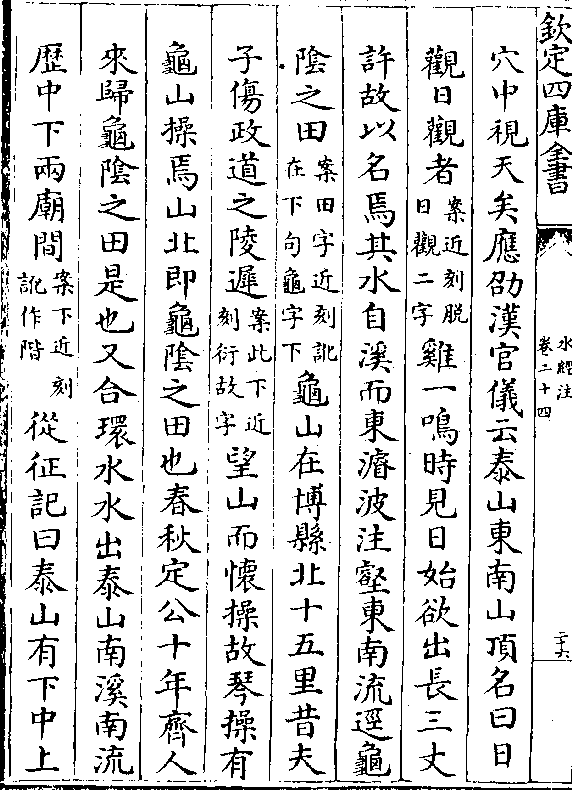 欽定四庫全書
水經注
卷二十四
二十六
穴中視天矣應劭漢官儀云泰山東南山頂名曰日
觀日觀者案近刻脱日觀二字雞一鳴時見日始欲出長三丈
許故以名焉其水自溪而東濬波注壑東南流逕龜
陰之田案田字近刻訛在下句龜字下龜山在博縣北十五里昔夫
子傷政道之陵遲案此下近刻衍故字望山而懷操故琴操有
龜山操焉山北即龜陰之田也春秋定公十年齊人
來歸龜陰之田是也又合環水水出泰山南溪南流
歴中下兩廟間案下近刻訛作階從征記曰泰山有下中上